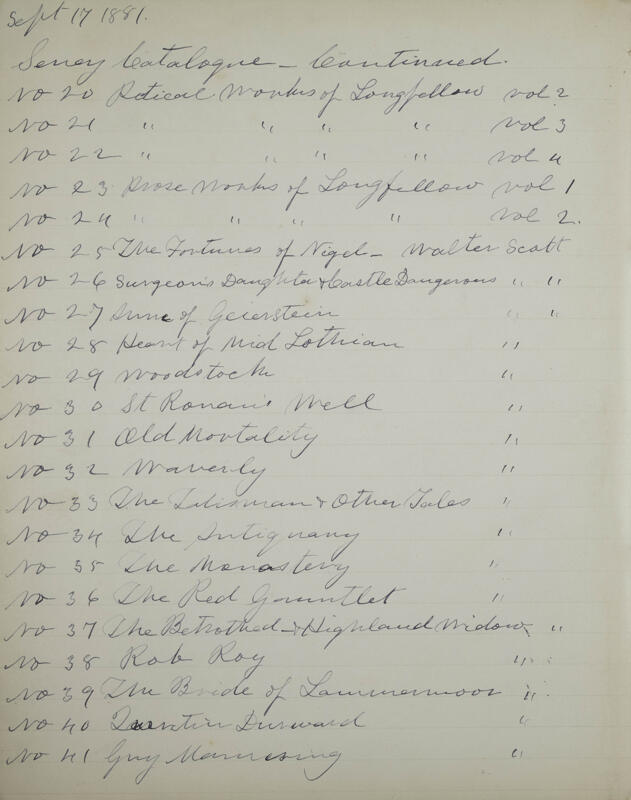 Sept 17 1881.
Seney Catalogue – Continued.
No 20 Poetical Works of Longfellow vol 2
No 21 " " " " vol 3
No 22 " " " " vol 4
No 23 Prose Works of Longfellow vol 1
No 24 " " " " vol 2.
No 25 The Fortunes of Nigel – Walter Scott
No 26 Surgeon's Daughter & Castle Dangerous " "
No 27 Anne of Geierstein " "
No 28 Heart of Mid Lothian "
No 29 Woodstock "
No 30 St Ronan's Well "
No 31 Old Mortality "
No 32 Waverly "
No 33 The Talisman & Other Tales "
No 34 The Antiquary "
No 35 The Monastery "
No 36 The Red Gauntlet "
No 37 The Betrothed – & Highland Widow "
No 38 Rob Roy "
No 39 The Bride of Lammermoor "
No 40 Quentin Durward "
No 41 Guy Mannering "